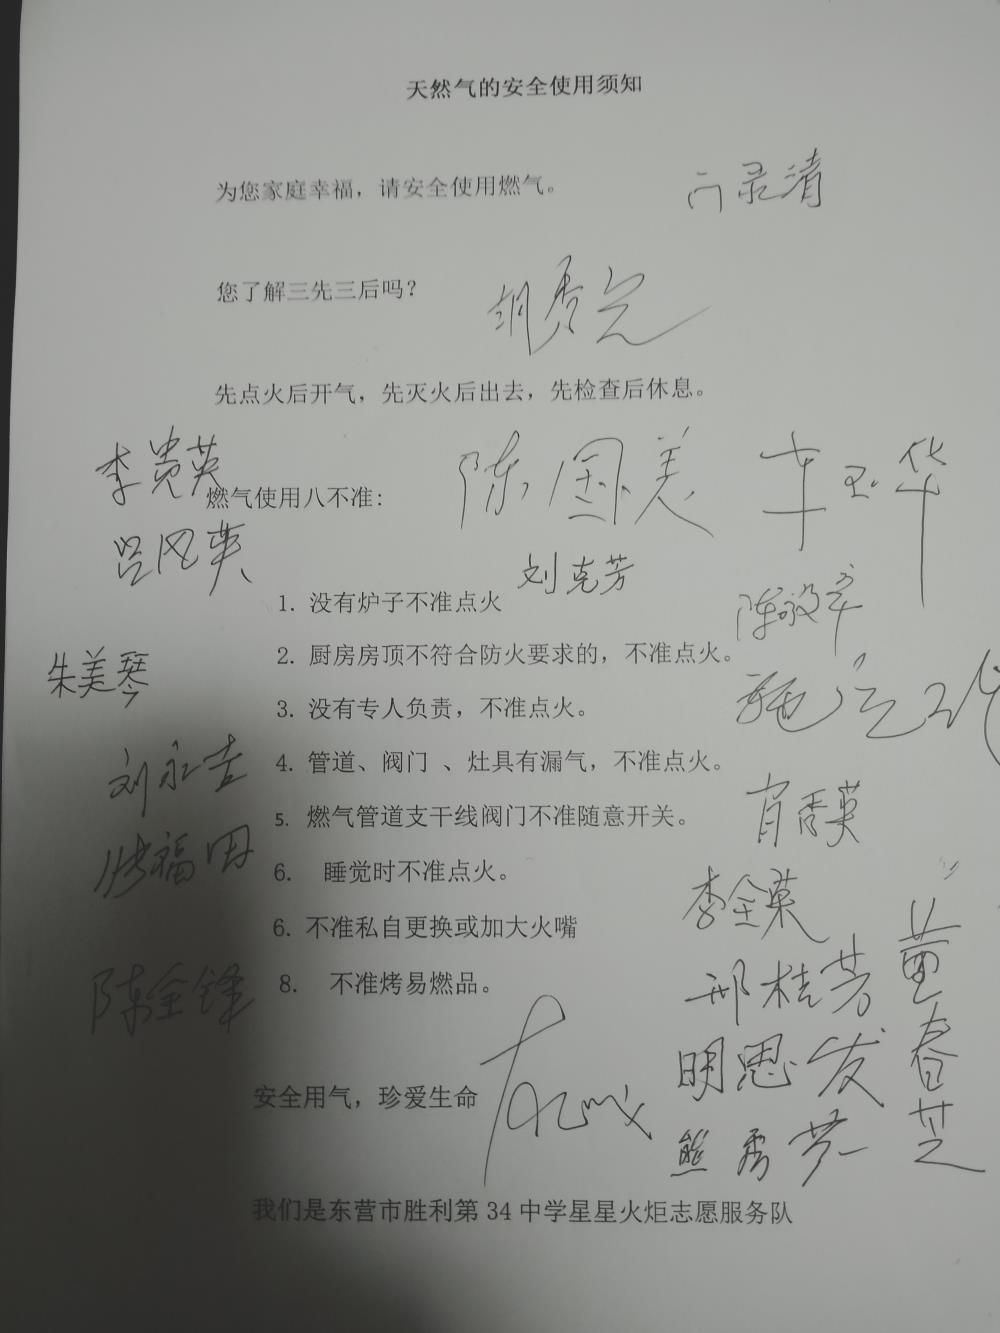 天然气的安全使用须知
为您家庭幸福，请安全使用燃气。
您了解三先三后吗？
先点火后开气，先灭火后出去，先检查后休息。
李贵英
陈国美
车玉华
燃气使用八不准：
吕风英
刘克芳
1. 没有炉子不准点火
2. 厨房房顶不符合防火要求的，不准点火。
朱美琴
3. 没有专人负责，不准点火。
刘永吉
4. 管道、阀门 、灶具有漏气，不准点火。
5. 燃气管道支干线阀门不准随意开关。
肖香英
张福田
6. 睡觉时不准点火。
李全英
6. 不准私自更换或加大火嘴
邢桂芳
董春芝
8. 不准烤易燃品。
陈全锋
明恩发
安全用气，珍爱生命
熊秀芳
我们是东营市胜利第 34 中学星星火炬志愿服务队